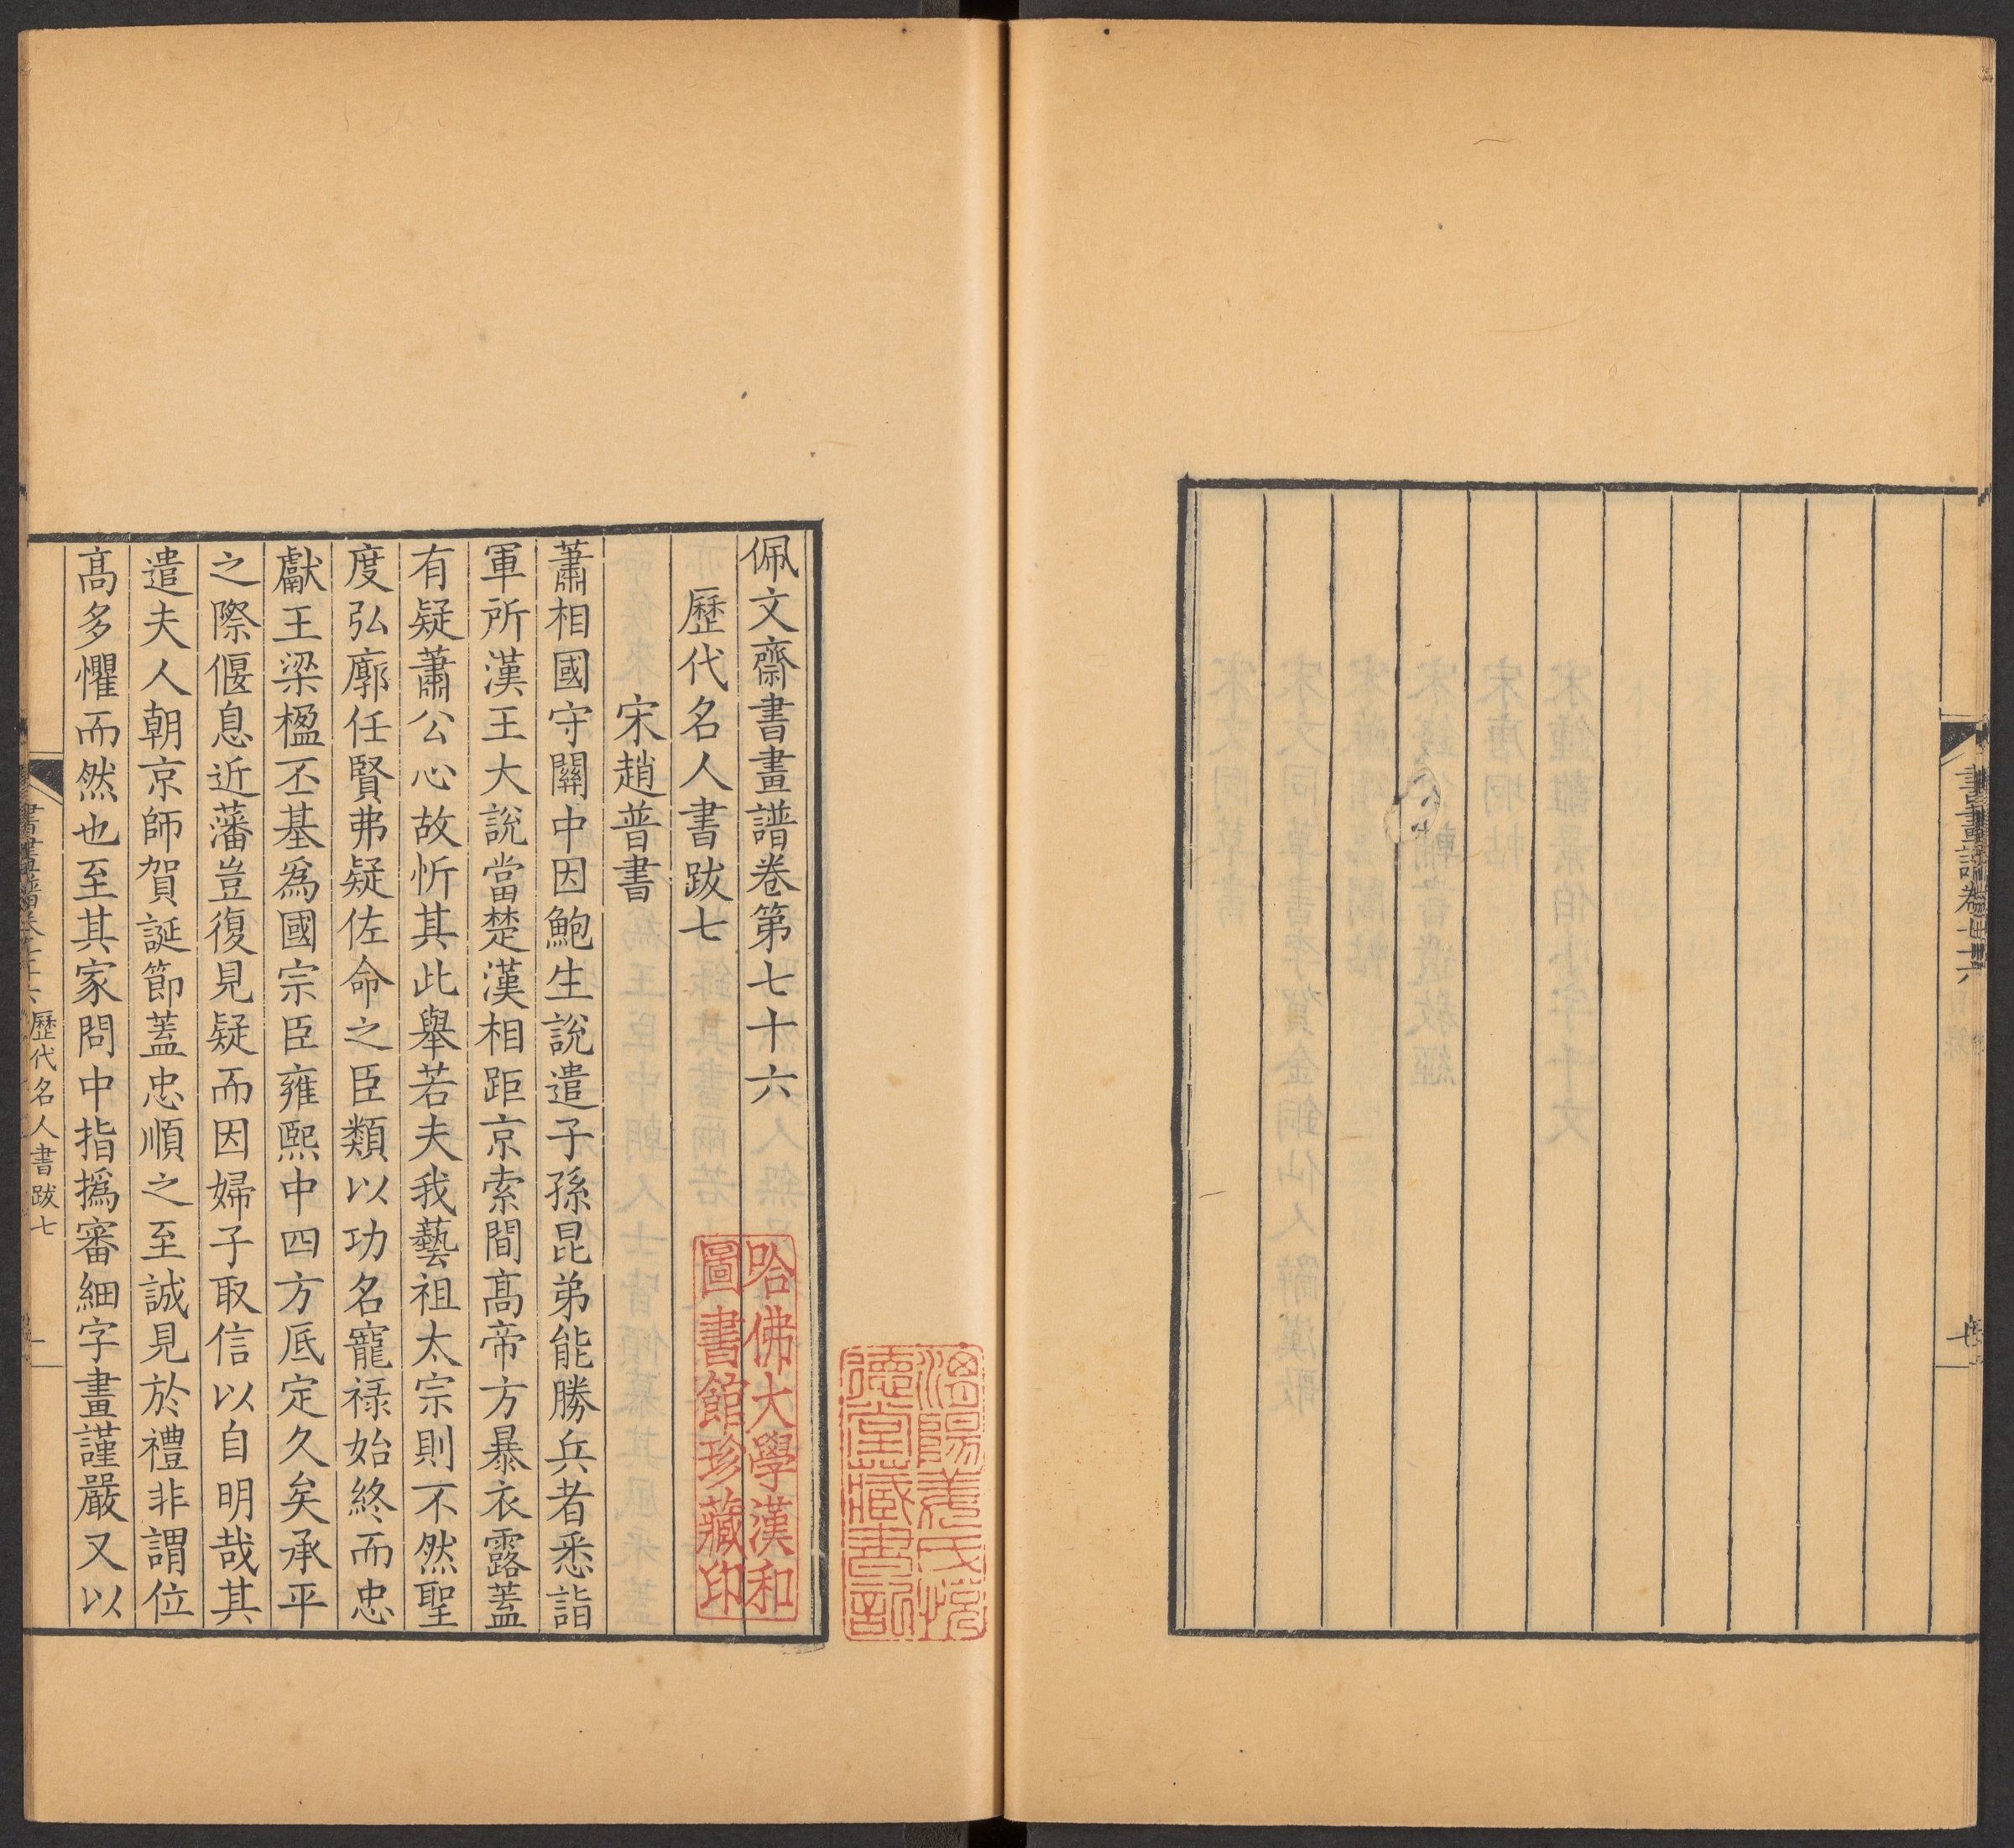 書畫譜卷七十六
佩文齋書畫譜卷第七十六
歷代名人書跋七
宋趙普書
蕭相國守關中因鮑生說遣子孫昆弟能勝兵者悉詣
軍所漢王大說當楚漢相距京索間髙帝方暴衣露蓋
有疑蕭公心故忻其此舉若夫我藝祖太宗則不然聖
度弘廓任賢弗疑佐命之臣類以功名寵禄始終而忠
獻王梁楹丕基爲國宗臣雍熙中四方底定久矣承平
之際偃息近藩豈復見疑而因婦子取信以自明哉其
遣夫人朝京師賀誕節蓋忠順之至誠見於禮非謂位
髙多懼而然也至其家問中指撝審細字畫謹嚴又以
歷代名人書跋七
一
哈佛大學漢和
圖書館珍藏印
德堂藏書記